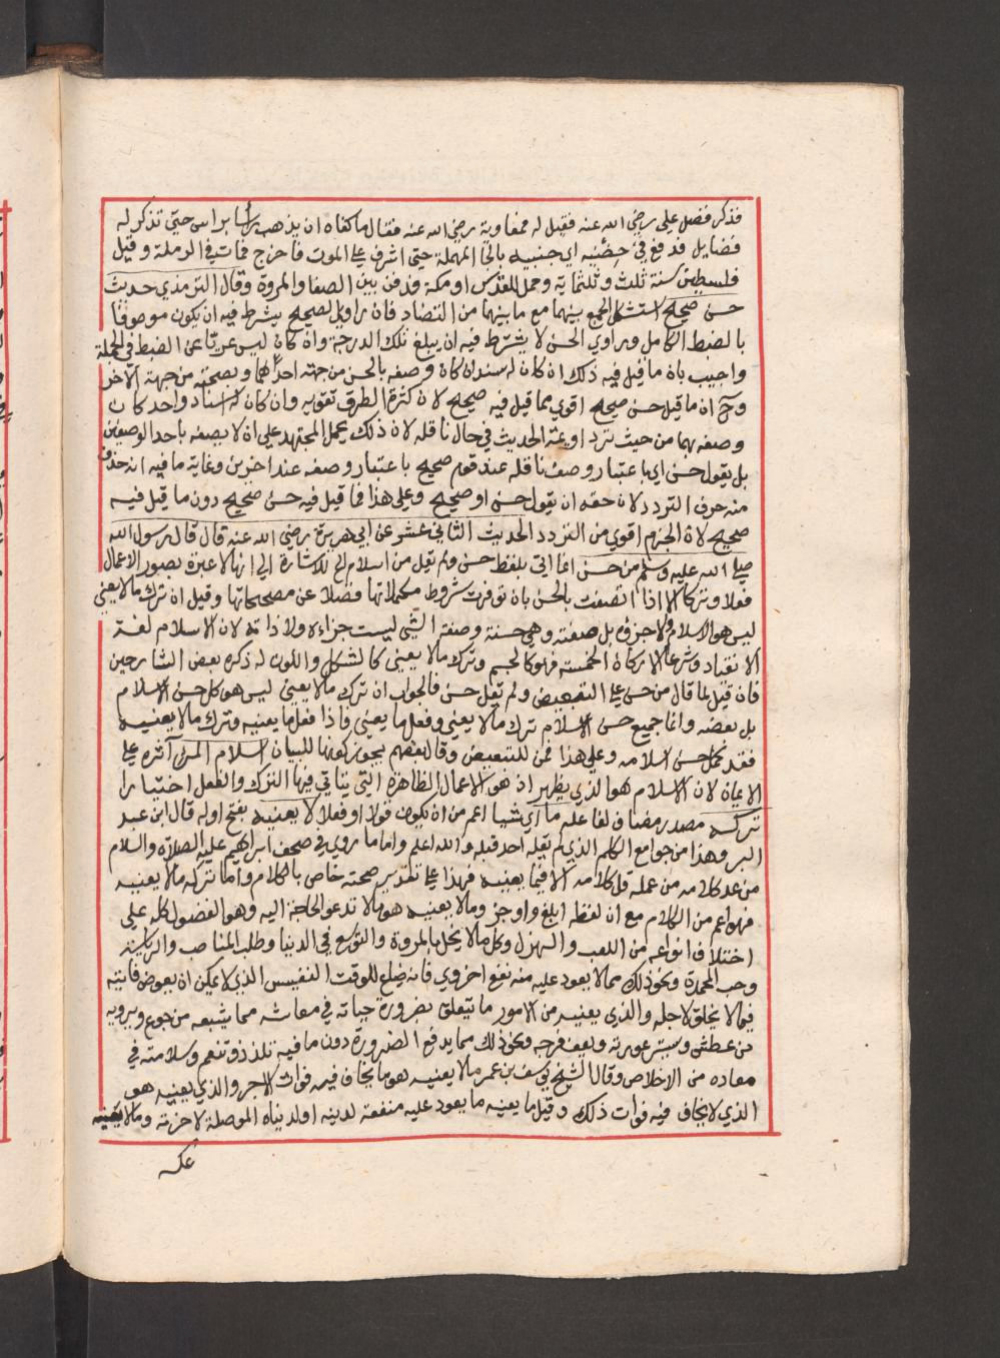 فذكر فضل علي رضي الله عنه فقيل له فمعاوية رضي الله عنه فقال ما كفاه ان يذهب رأسا براس حتى تذكر له
فضايل فدفع في حضنيه اي جنبيه بالحا المهملة حتى اشرف على الموت فاخرج فمات في الرملة وقيل
فلسطين سنة ثلث وثلثماية وحمل للمقدس او مكة فدفن بين الصفا والمروة وقال الترمذي حديث
حسن صحيح استشكل الجمع بينهما مع ما بينهما من التضاد فان راوي الصحيح يشترط فيه ان يكون موصوفا
بالضبط الكامل وراوي الحسن لا يشترط فيه ان يبلغ تلك الدرجة وان كان ليس عريا عن الضبط في الجملة
واجيب بان ما قيل فيه ذلك ان كان له سندان كان وصفه بالحسن من جهة احدهما وبصحته من جهة الاخر
وح ان ما قيل حسن صحيح اقوي مما قيل فيه صحيح لان كثرة الطرق تقويه وان كان له اسناد واحد كان
وصفه بهما من حيث تردد اوعية الحديث في حال ناقله لان ذلك يحمل المجتهد على ان لا يصفه باحد الوصفين
بل يقول حسن اي باعتبار وصف ناقله عند قوم صحيح باعتبار وصفه عند اخرين وغاية ما فيه انه حذف
منه حرف التردد لان حقه ان يقول حسن او صحيح وعلى هذا فما قيل فيه حسن صحيح دون ما قيل فيه
صحيح لان الجزم اقوي من التردد الحديث الثاني عشر عن ابي هريرة رضي الله عنه قال قال رسول الله
صلى الله عليه وسلم من حسن انما اتى بلفظ حسن ولم يقل من اسلام الخ للاشارة الى انها لا عبرة بصور الاعمال
فعلا وتركا الا اذا اتصفت بالحسن بان توفرت شروط مكملاتها فضلا عن مصححاتها وقيل ان ترك ما لا يعني
ليس هو الاسلام ولا جزؤه بل صفته وهي حسنة وصفة الشي ليست جزاءه ولا ذاته لان الاسلام لغة
الانقياد وشرعا الاركان الخمسة فهو كالجسم وترك ما لا يعني كالشكل واللون له ذكره بعض الشارحين
فان قيل لما قال من حسن على التبعيض ولم يقل حسن فالجواب ان ترك ما لا يعني ليس هو كل حسن الاسلام
بل بعضه وانما جميع حسن الاسلام ترك ما لا يعني وفعل ما يعني فاذا فعل ما يعنيه وترك ما لا يعنيه
فقد كمل حسن اسلامه وعلى هذا فمن للتبعيض وقال بعضهم يجوز كونها للبيان اسلام المرء آثره على
الايمان لان الاسلام هو الذي يظهر اذ هو الاعمال الظاهرة التي يتاتى فيها الترك والفعل اختيارا
تركه مصدر مضاف لفاعله ما اي شيا اعم من ان يكون قولا او فعلا لا يعنيه بفتح اوله قال ابن عبد
البر وهذا من جوامع الكلم الذي لم يقله احد قبله والله اعلم واما ما روي في صحف ابراهيم عليه الصلاة والسلام
من عد كلامه من عمله قل كلامه الا فيما يعنيه فهذا على تقدير صحته خاص بالكلام واما تركه ما لا يعنيه
فهو اعم من الكلام مع ان لفظه ابلغ واوجز وما لا يعنيه هو ما لا تدعو الحاجة اليه وهو الفضول كله على
اختلاف انواعه من اللعب والهزل وكل ما لا يخل بالمروة والتوسع في الدنيا وطلب المناصب والرياسة
وحب المحمدة ونحو ذلك مما لا يعود عليه منه نفع اخروي فانه ضياع للوقت النفيس الذي لا يمكن ان يعوض فايته
فيما لا يخلق لاجله والذي يعنيه من الامور ما يتعلق بضرورة حياته في معاشه مما يشبعه من جوع ويرويه
من عطش ويستر عورته ويعف فرجه ونحو ذلك مما يدفع الضرورة دون ما فيه تلذذ وتنعم وسلامته في
معاده من الاخلاص وقال الشيخ يوسف بن عمر ما لا يعنيه هو ما يخاف فيه فوات الاجر والذي يعنيه هو
الذي لا يخاف فيه فوات ذلك وقيل ما يعنيه ما يعود عليه منفعة لدينه او لدنياه الموصلة لاخرته وما لا يعنيه
عكـ